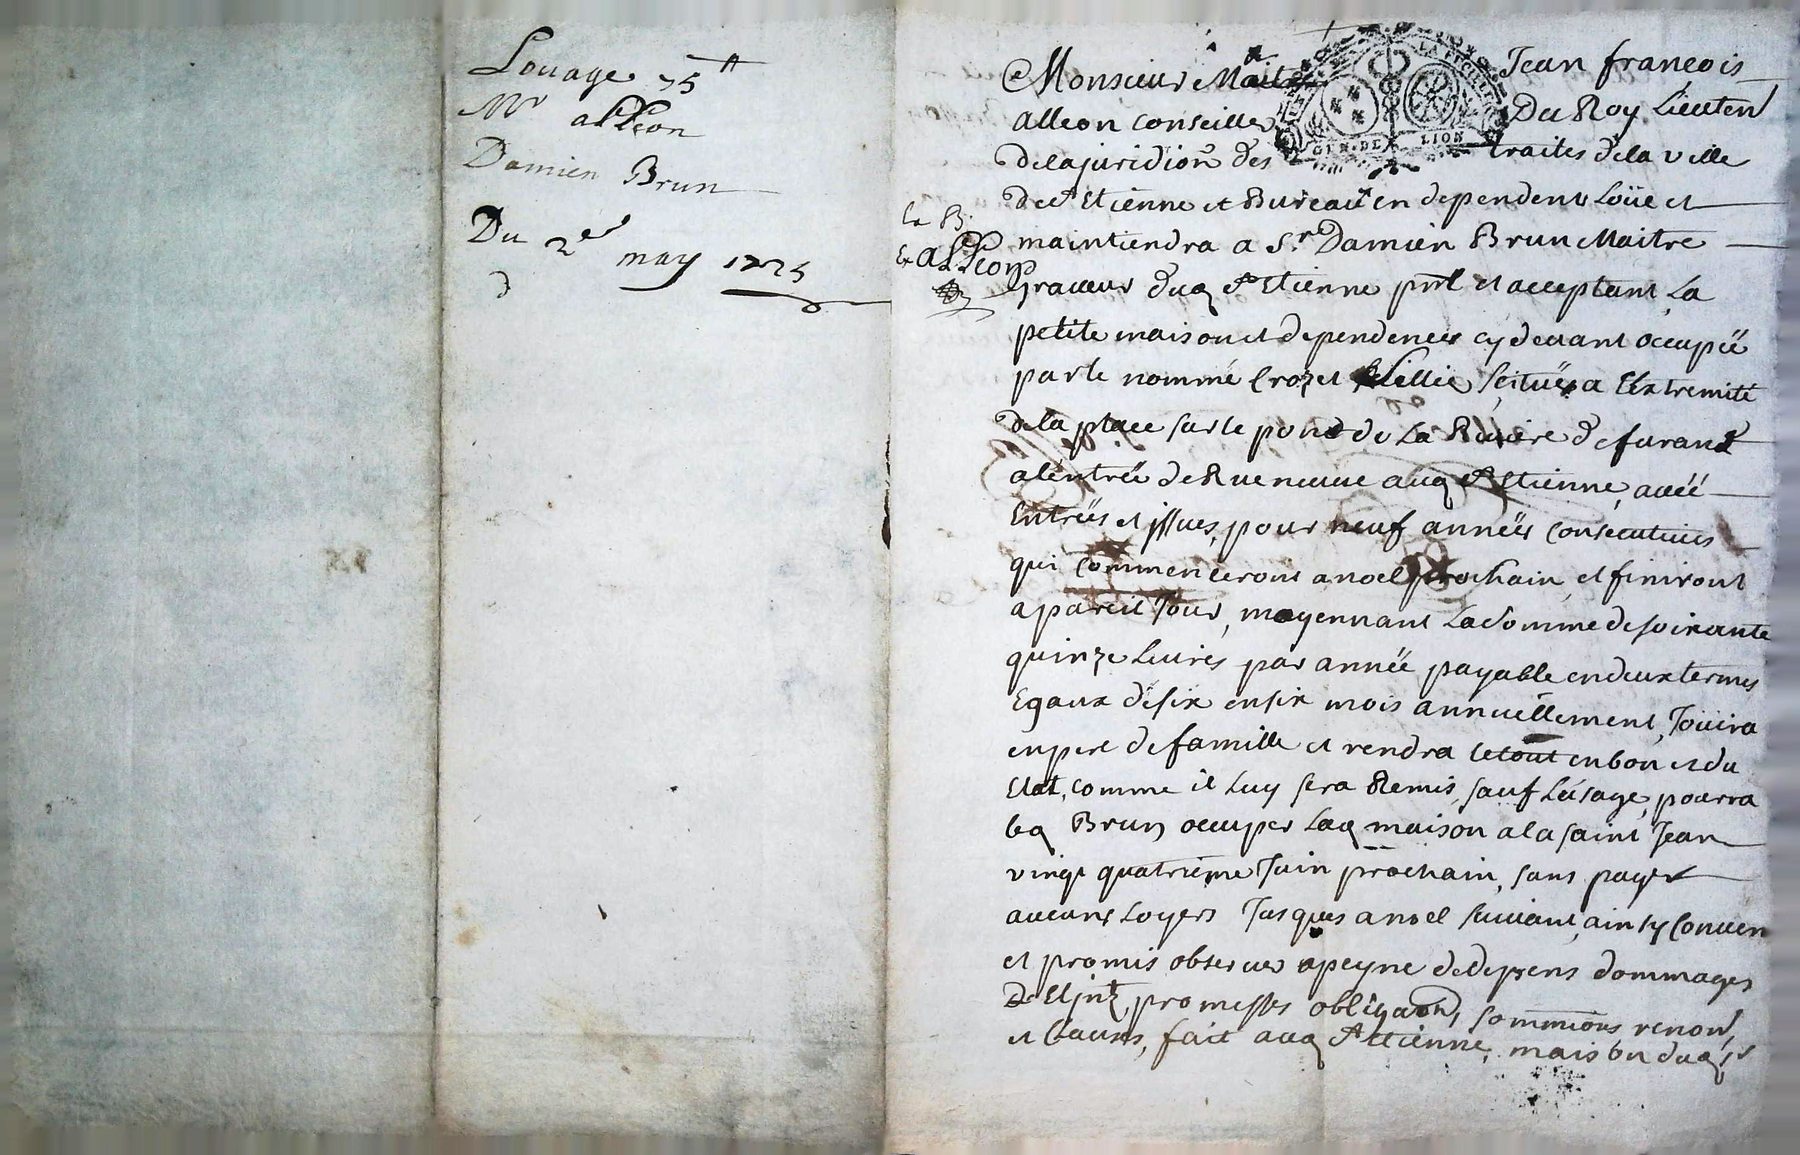 Louage 75ᵗᵗ
Mr alléon
Damien Brun
Du 2e may 1725
Monsieur Maitre Jean francois
alleon conseiller Du Roy Lieuten
dela juridion des traites dela ville
GEN. DE LION
de st Etienne et Bureau en dependent Loüe et
maintiendra a Sr. Damien Brun Maitre
alléon
graveur dud st Etienne pnt et acceptant La
petite maison et dependences cy devant occupeë
par le nommé Crozet scituëe a Lextremité
dela place sur le pond de La Riviere de furand
a léntreé de Rue neuve aud st Etienne, aveć
Entreës et issues, pour neuf anneës consecutives
qui commenceront a noel prochain, et finiront
a pareil Jour, moyennant La Somme de soixante
quinze Livres par anneë payable en deux termes
Egaux de six en six mois annuéllement, Joüira
en pere de famille et rendra le tout en bon et du
Etat, comme il Luy sera Remis, sauf Lúsage, pourra
led Brun occuper Lad maison a la saint Jean
vingt quatrieme Juin prochain, sans payer
aucuns Loyers Jusques a noel suivant, ainsy Conven
et promis observer a peyne de depens dommages
Et jntz promesses obligaons, sommions renons,
et Clauses, fait aud st Etienne, maison dud sr